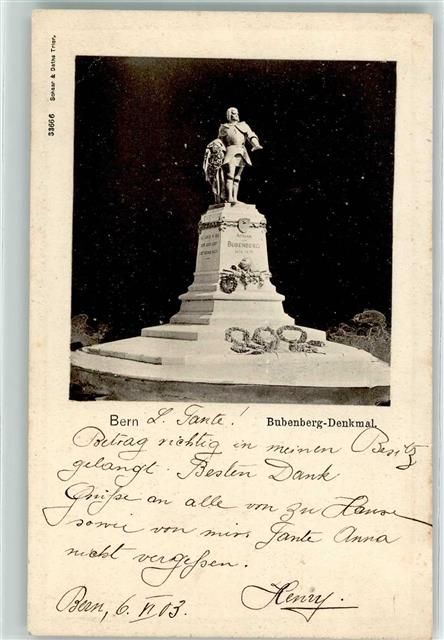 33666 Schaar & Dathe Trier.
ADRIAN
VON
BUBENBERG
Bern L. Tante! Bubenberg-Denkmal.
Betrag richtig in meinen Besitz
gelangt. Besten Dank
Grüße an alle von zu Hause
sowie von mir. Tante Anna
nicht vergessen.
Henry.
Bern, 6. VI 03.